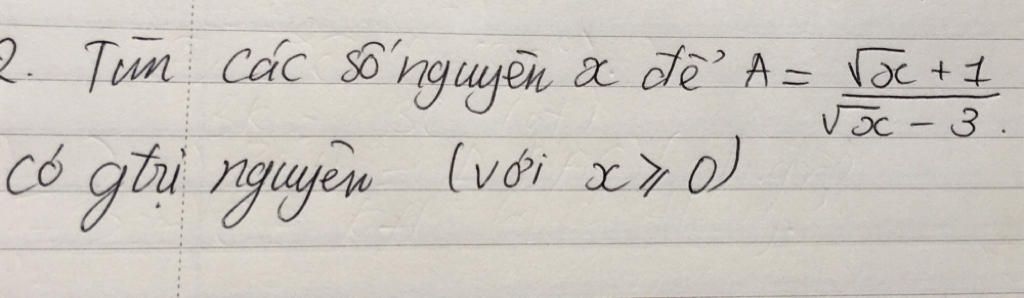 2. Tìm các số nguyên x để A = \frac{\sqrt{x} + 1}{\sqrt{x} - 3}.
có gtrị nguyên (với x ⩾ 0)